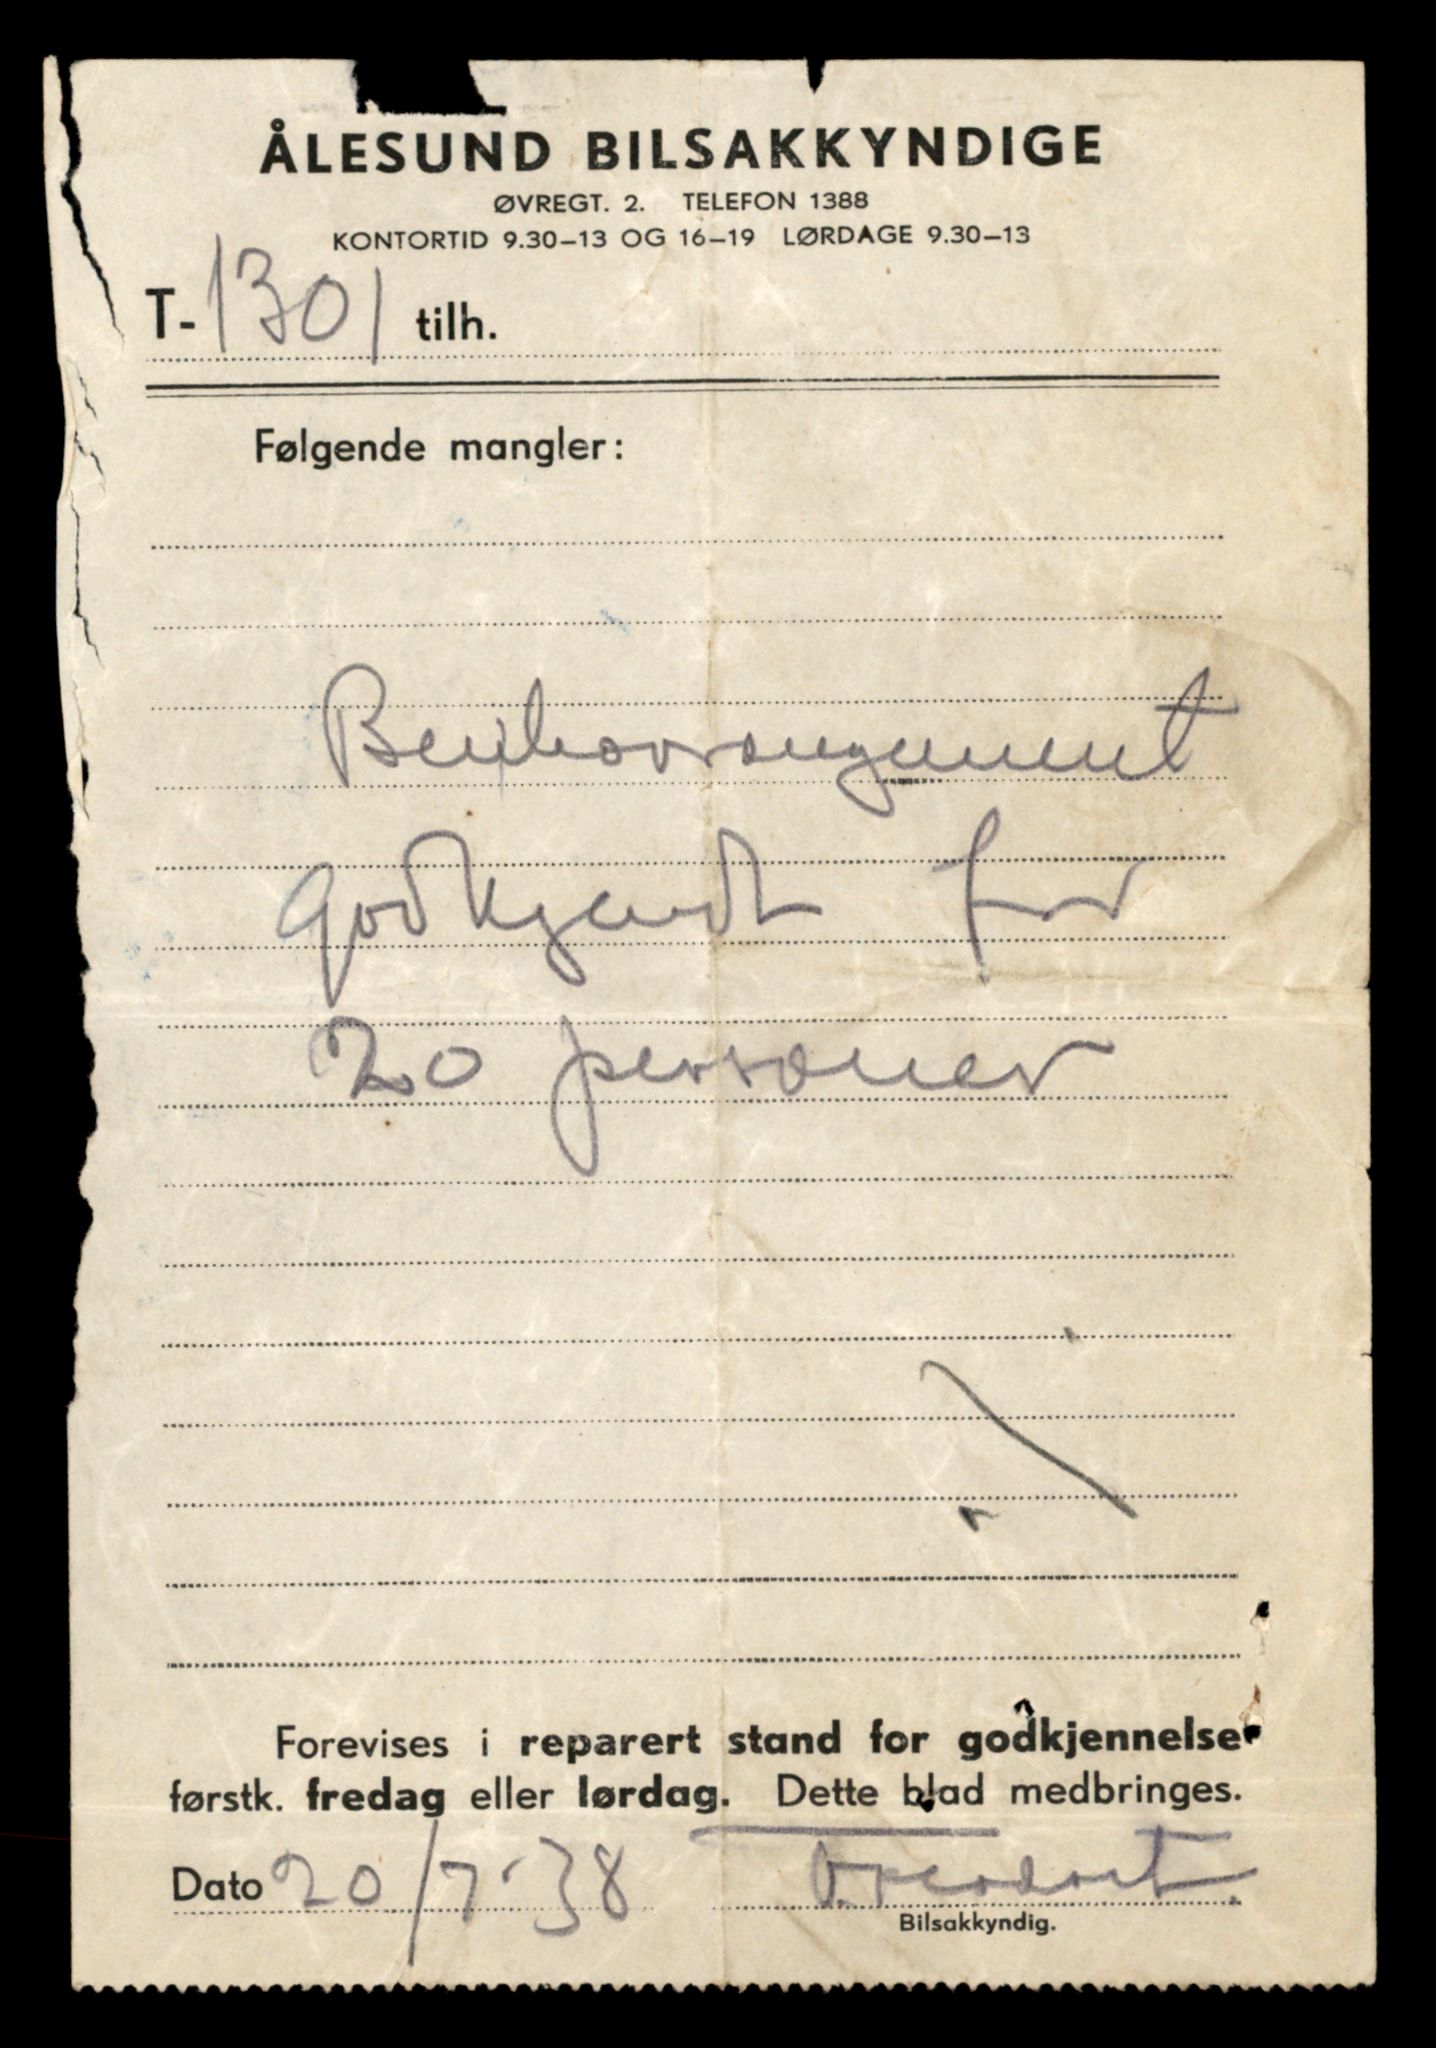 ÅLESUND BILSAKKYNDIGE
ØVREGT. 2. TELEFON 1388
KONTORTID 9.30–13 OG 16–19 LØRDAGE 9.30–13
T-1301 tilh.
Følgende mangler:
Benkearrangement
godkjendt for
20 personer
Forevises i reparert stand for godkjennelse
førstk. fredag eller lørdag. Dette blad medbringes.
Dato 20/7-38
Bilsakkyndig.